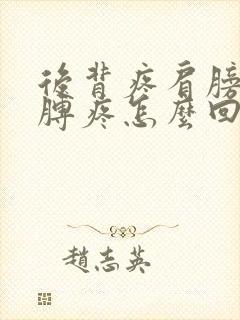 後背疼肩膀
脾疼怎麼回
趙志英